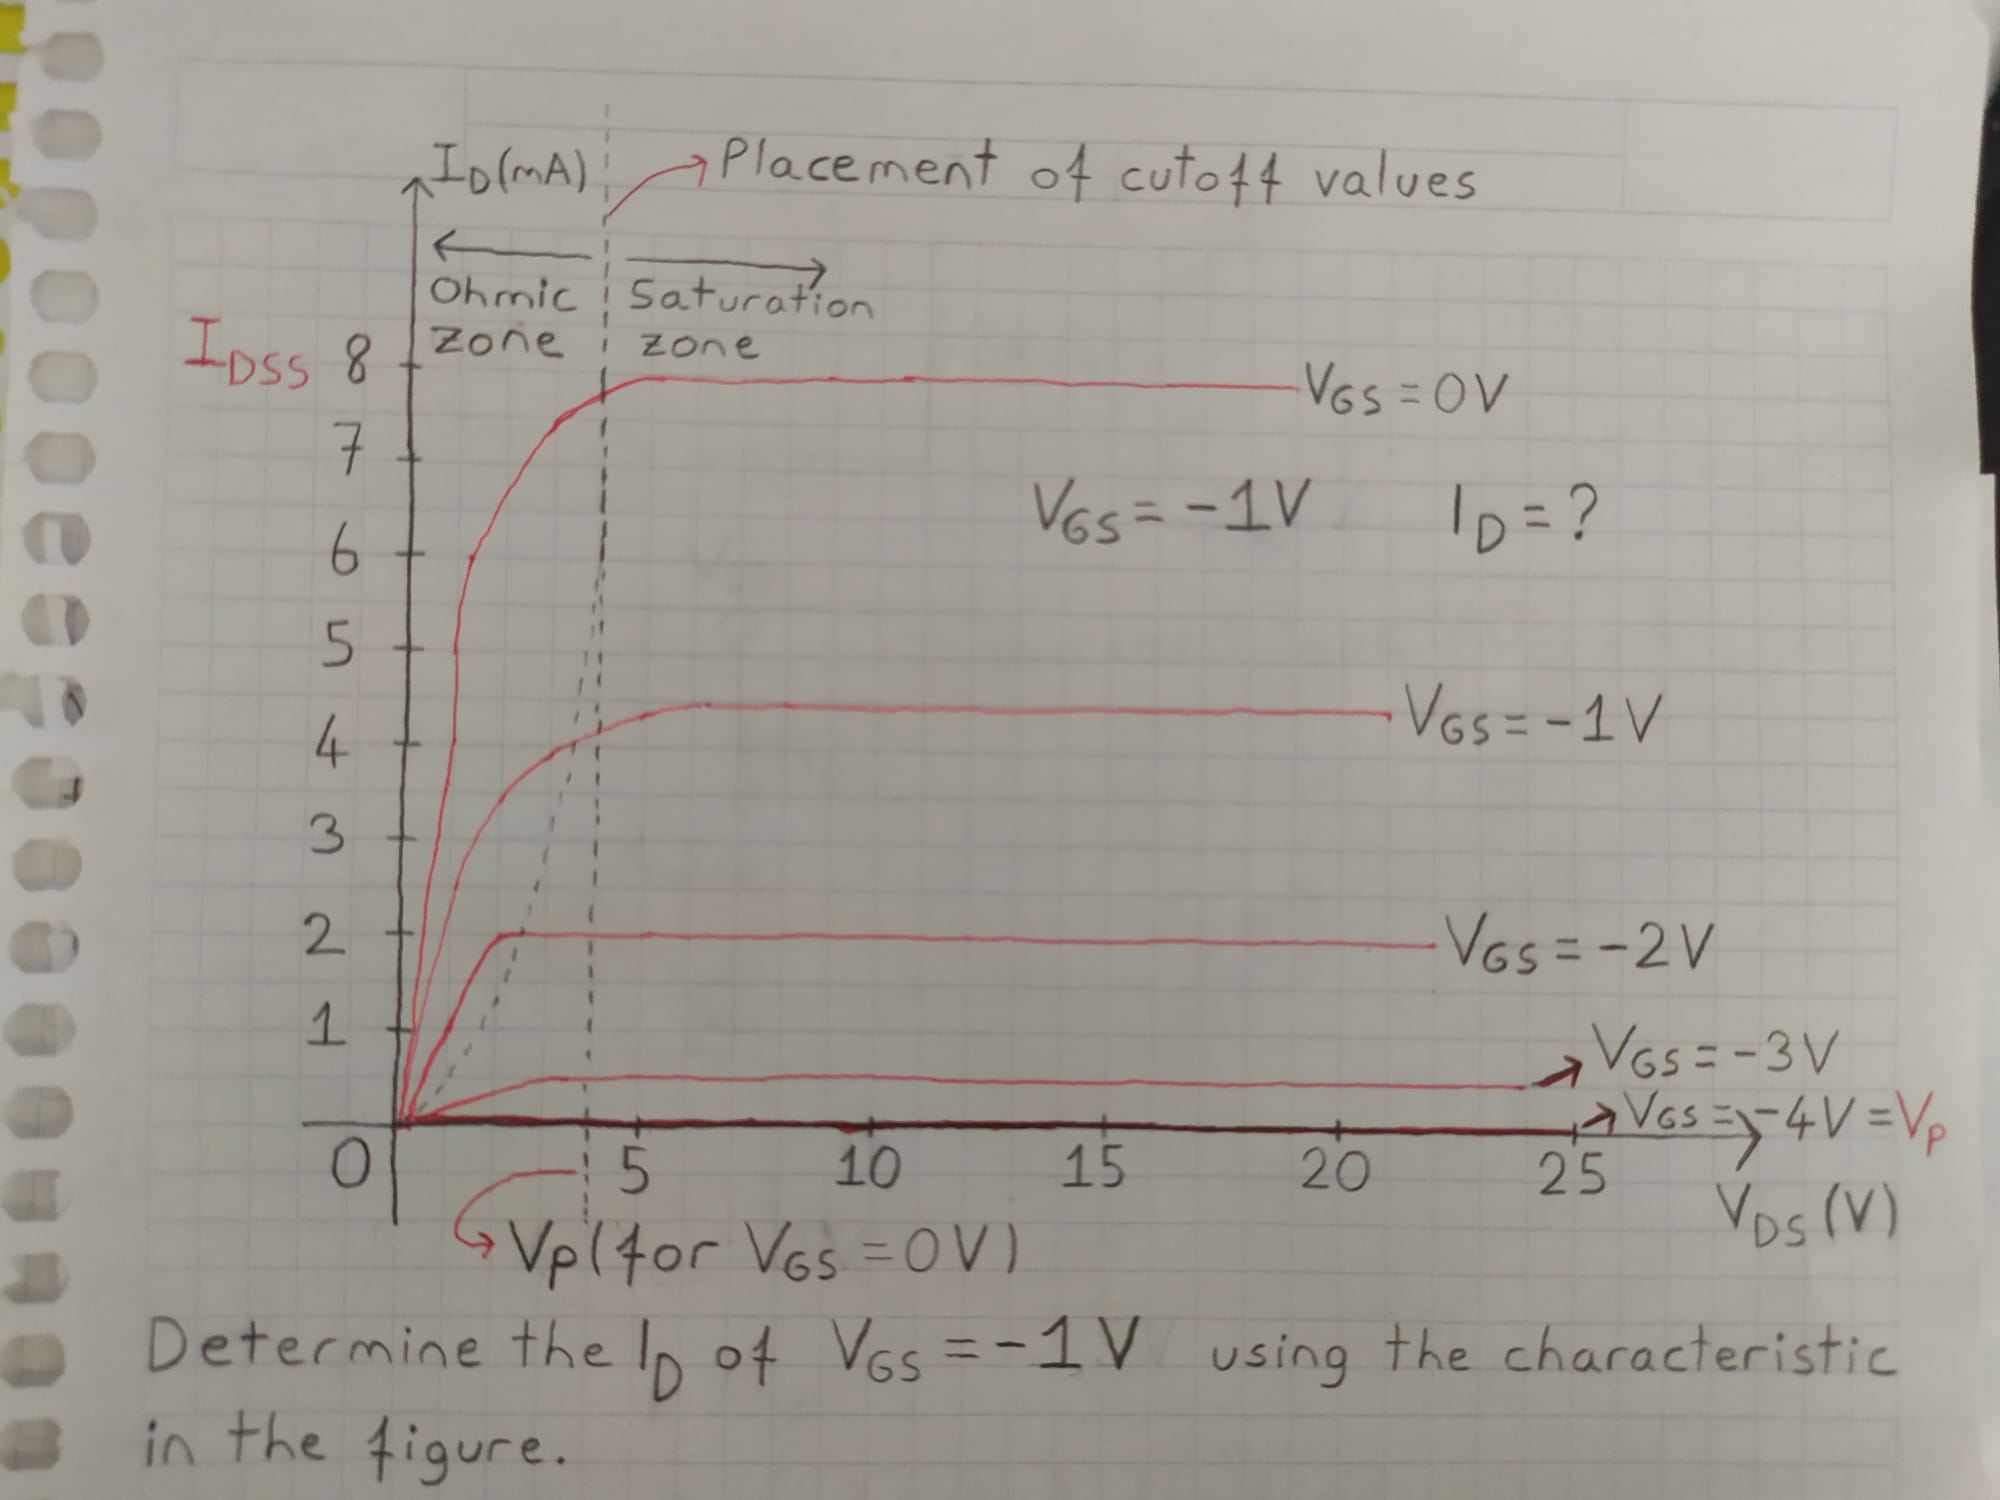 I_D(mA)
Placement of cutoff values
Ohmic zone
Saturation zone
I_DSS 8
V_GS = 0V
7
V_GS = -1V I_D = ?
6
5
V_GS = -1V
4
3
2
V_GS = -2V
1
V_GS = -3V
V_GS = -4V = V_P
0 5 10 15 20 25
V_DS (V)
V_P (for V_GS = 0V)
Determine the I_D of V_GS = -1V using the characteristic
in the figure.